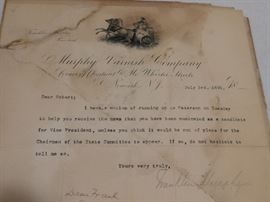 Murphy Varnish Company
Newark, N.J.
July 3rd, 189
Dear Hobart:
I have a notion of running up to Paterson on Tuesday
to help you receive the news that you have been nominated as a candidate
for Vice President, unless you think it would be out of place for the
Chairman of the State Committee to appear. If so, do not hesitate to
tell me so.
Yours very truly,
Franklin Murphy
Dear Frank